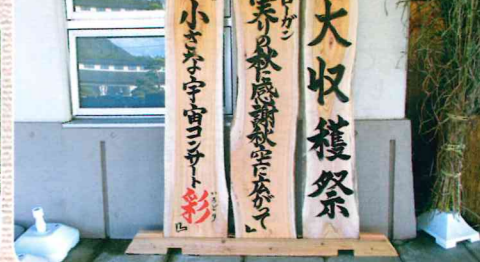 大収穫祭
ローガン
実りの秋に感謝秋空に広がって』
小さな宇宙コンサート彩』
いろどり